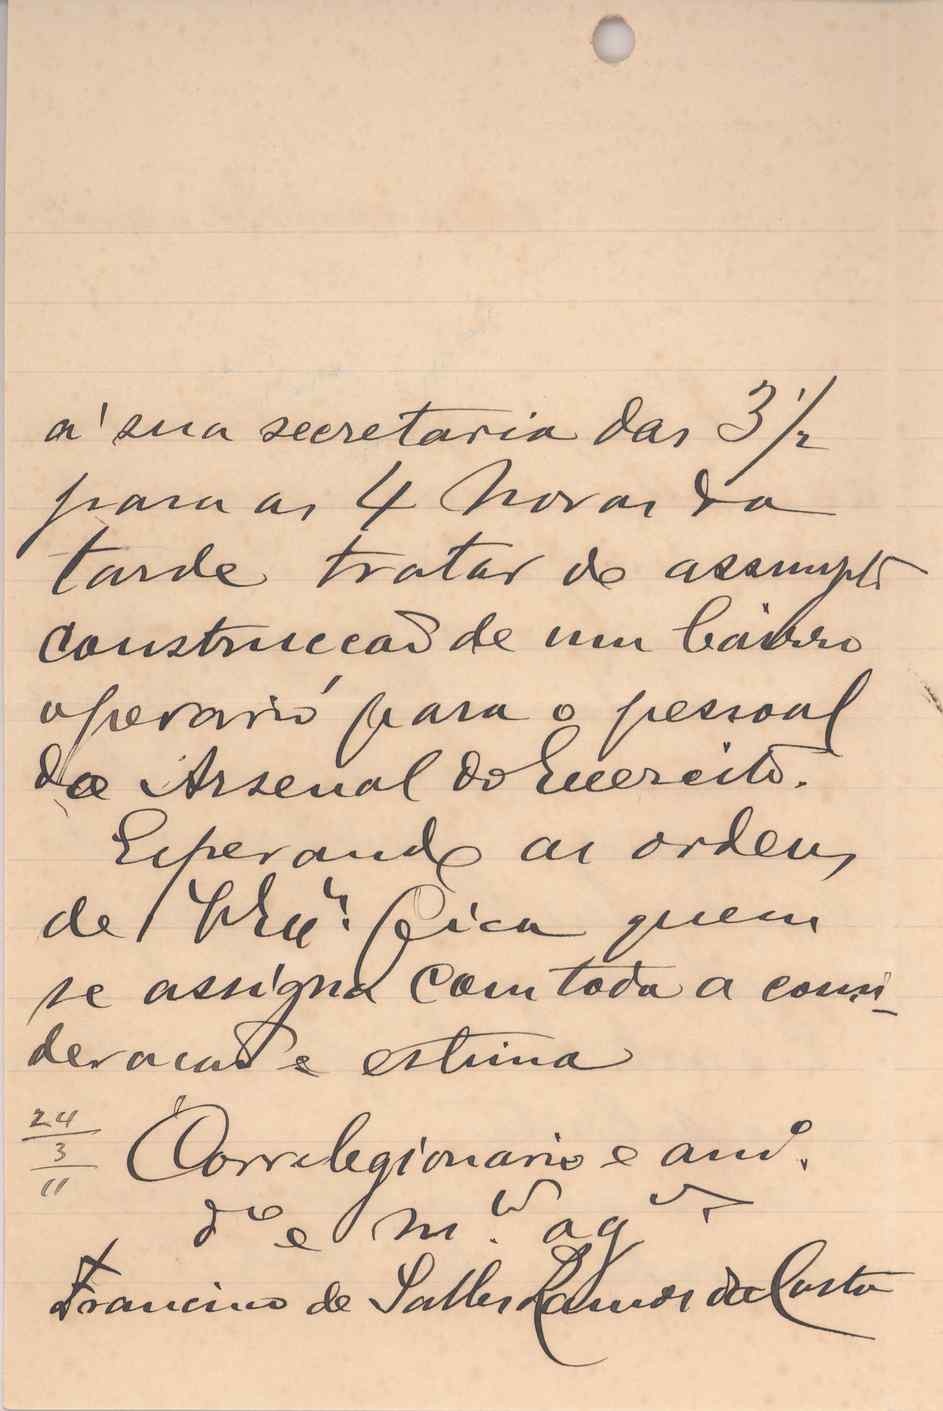 á sua secretaria das 3 1/2
para as 4 horas da
tarde tratar do assumpto
construcção de um bairro
operario para o pessoal
do Arsenal do Exercito.
Esperando as ordens
de V. Exª. fica quem
se assigna com toda a consi-
deração e estima
24
3
11
Correlegionario e amº.
dº e m.to
Francisco de Salles Ramos da Costa